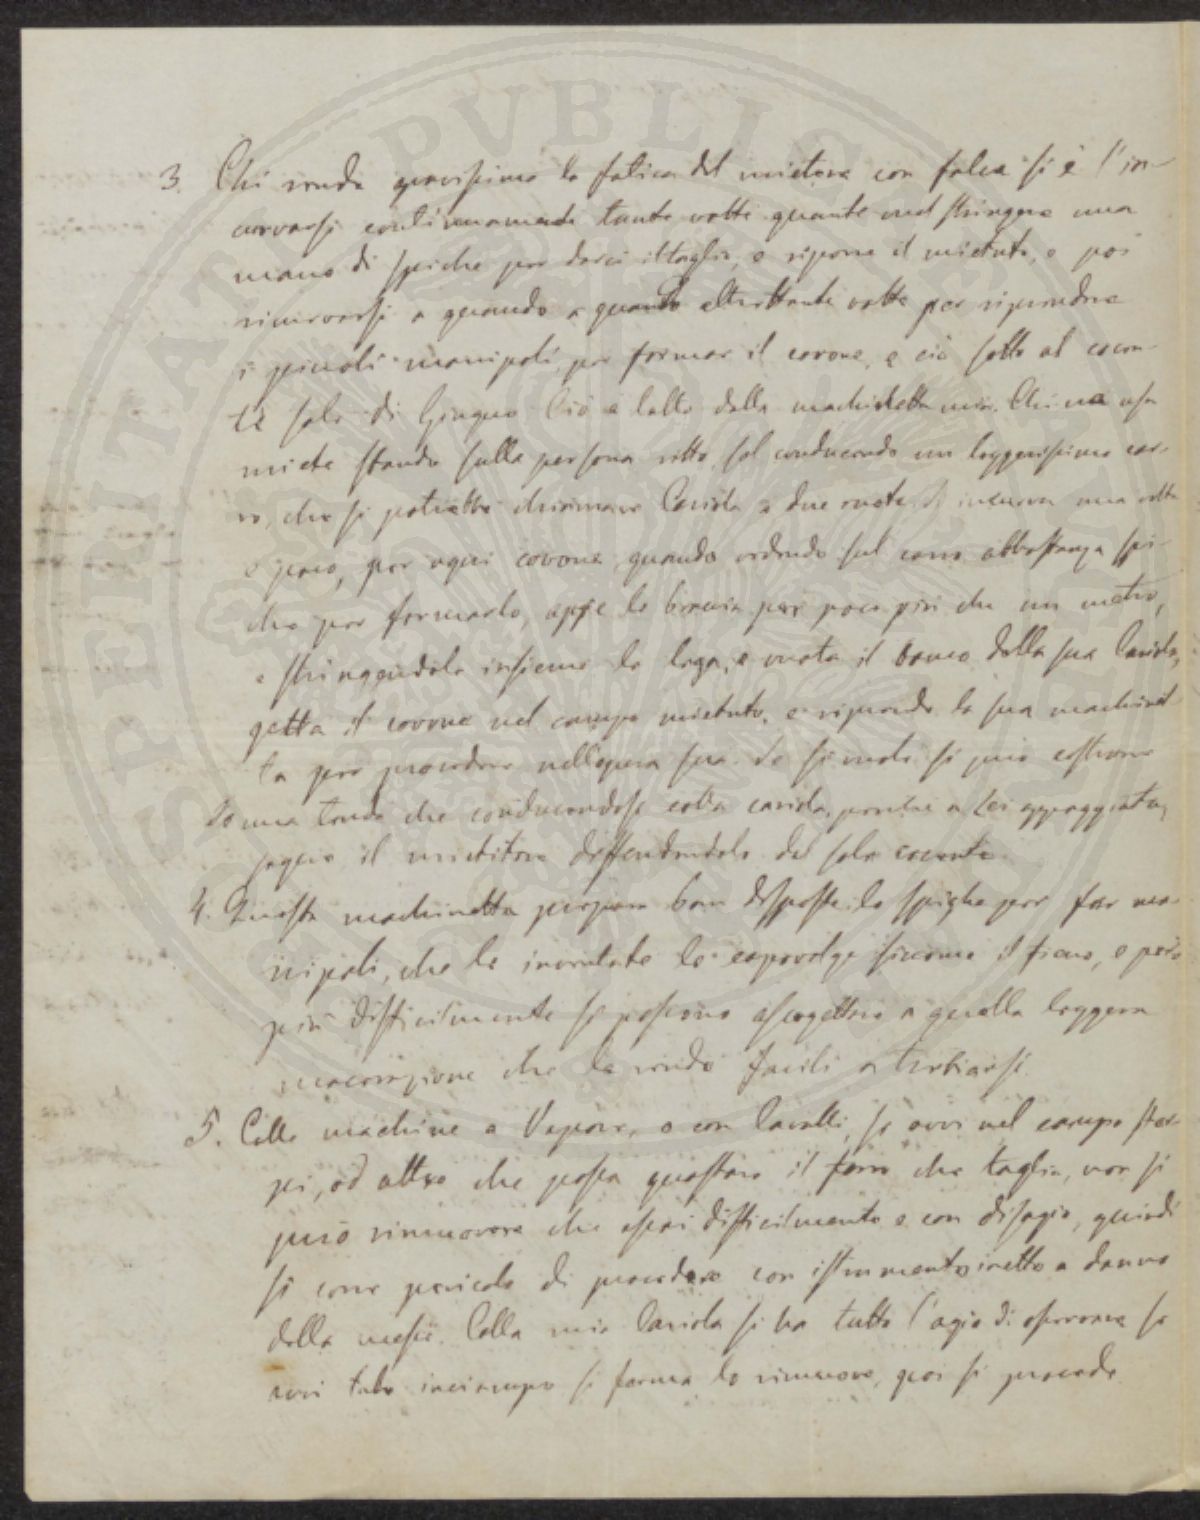 3. Chi rende gravissima la fatica del mietere con falce si è l'in-
curvarsi continuamente tante volte quante nel stringere una
mano di spiche per darci il taglio, e riporre il mietuto, e poi
rincurvarsi a quando a quando altrettante volte per riprendere
i piccoli manipoli per formar il covone, e ciò sotto al cocen-
te sole di Giugno. Ciò è tolto dalla machinetta mia. Chi ne usa
miete stando sulla persona ritto, sol conducendo un leggerissimo car-
ro, che si potrebbe chiamare Cariola a due ruote. Si incurva una volta
e poco, per ogni covone, quando vedendo sul carro abbastanza spi-
che per formarlo, apre le braccia per poco più che un metro,
e stringendole insieme le lega, e vuota il banco della sua Cariola,
getta il covone nel campo mietuto, e riprende la sua machinet-
ta per procedere nell'opera sua. Se si vuole si può costruire
una tenda che conducendosi colla cariola, perché a lei appoggiata,
segue il mietitore diffendendolo dal sole cocente.
4. Questa machinetta prepara ben disposte le spighe per far ma-
nipoli, che le inventate le capovolge siccome il fieno, e però
più difficilmente si possono assogettare a quella leggera
che le rende facili a
5. Colle machine a Vapore, o con Cavalli, se avvi nel campo ster-
pi, od altro che possa guastare il ferro che taglia, non si
può rimuovere che assai difficilmente e con disagio, quindi
si corre pericolo di procedere con istrumento inetto a danno
della messe. Colla mia Cariola si ha tutto l'agio di osservare se
avvi tale inciampo si ferma lo rimuove, poi si procede